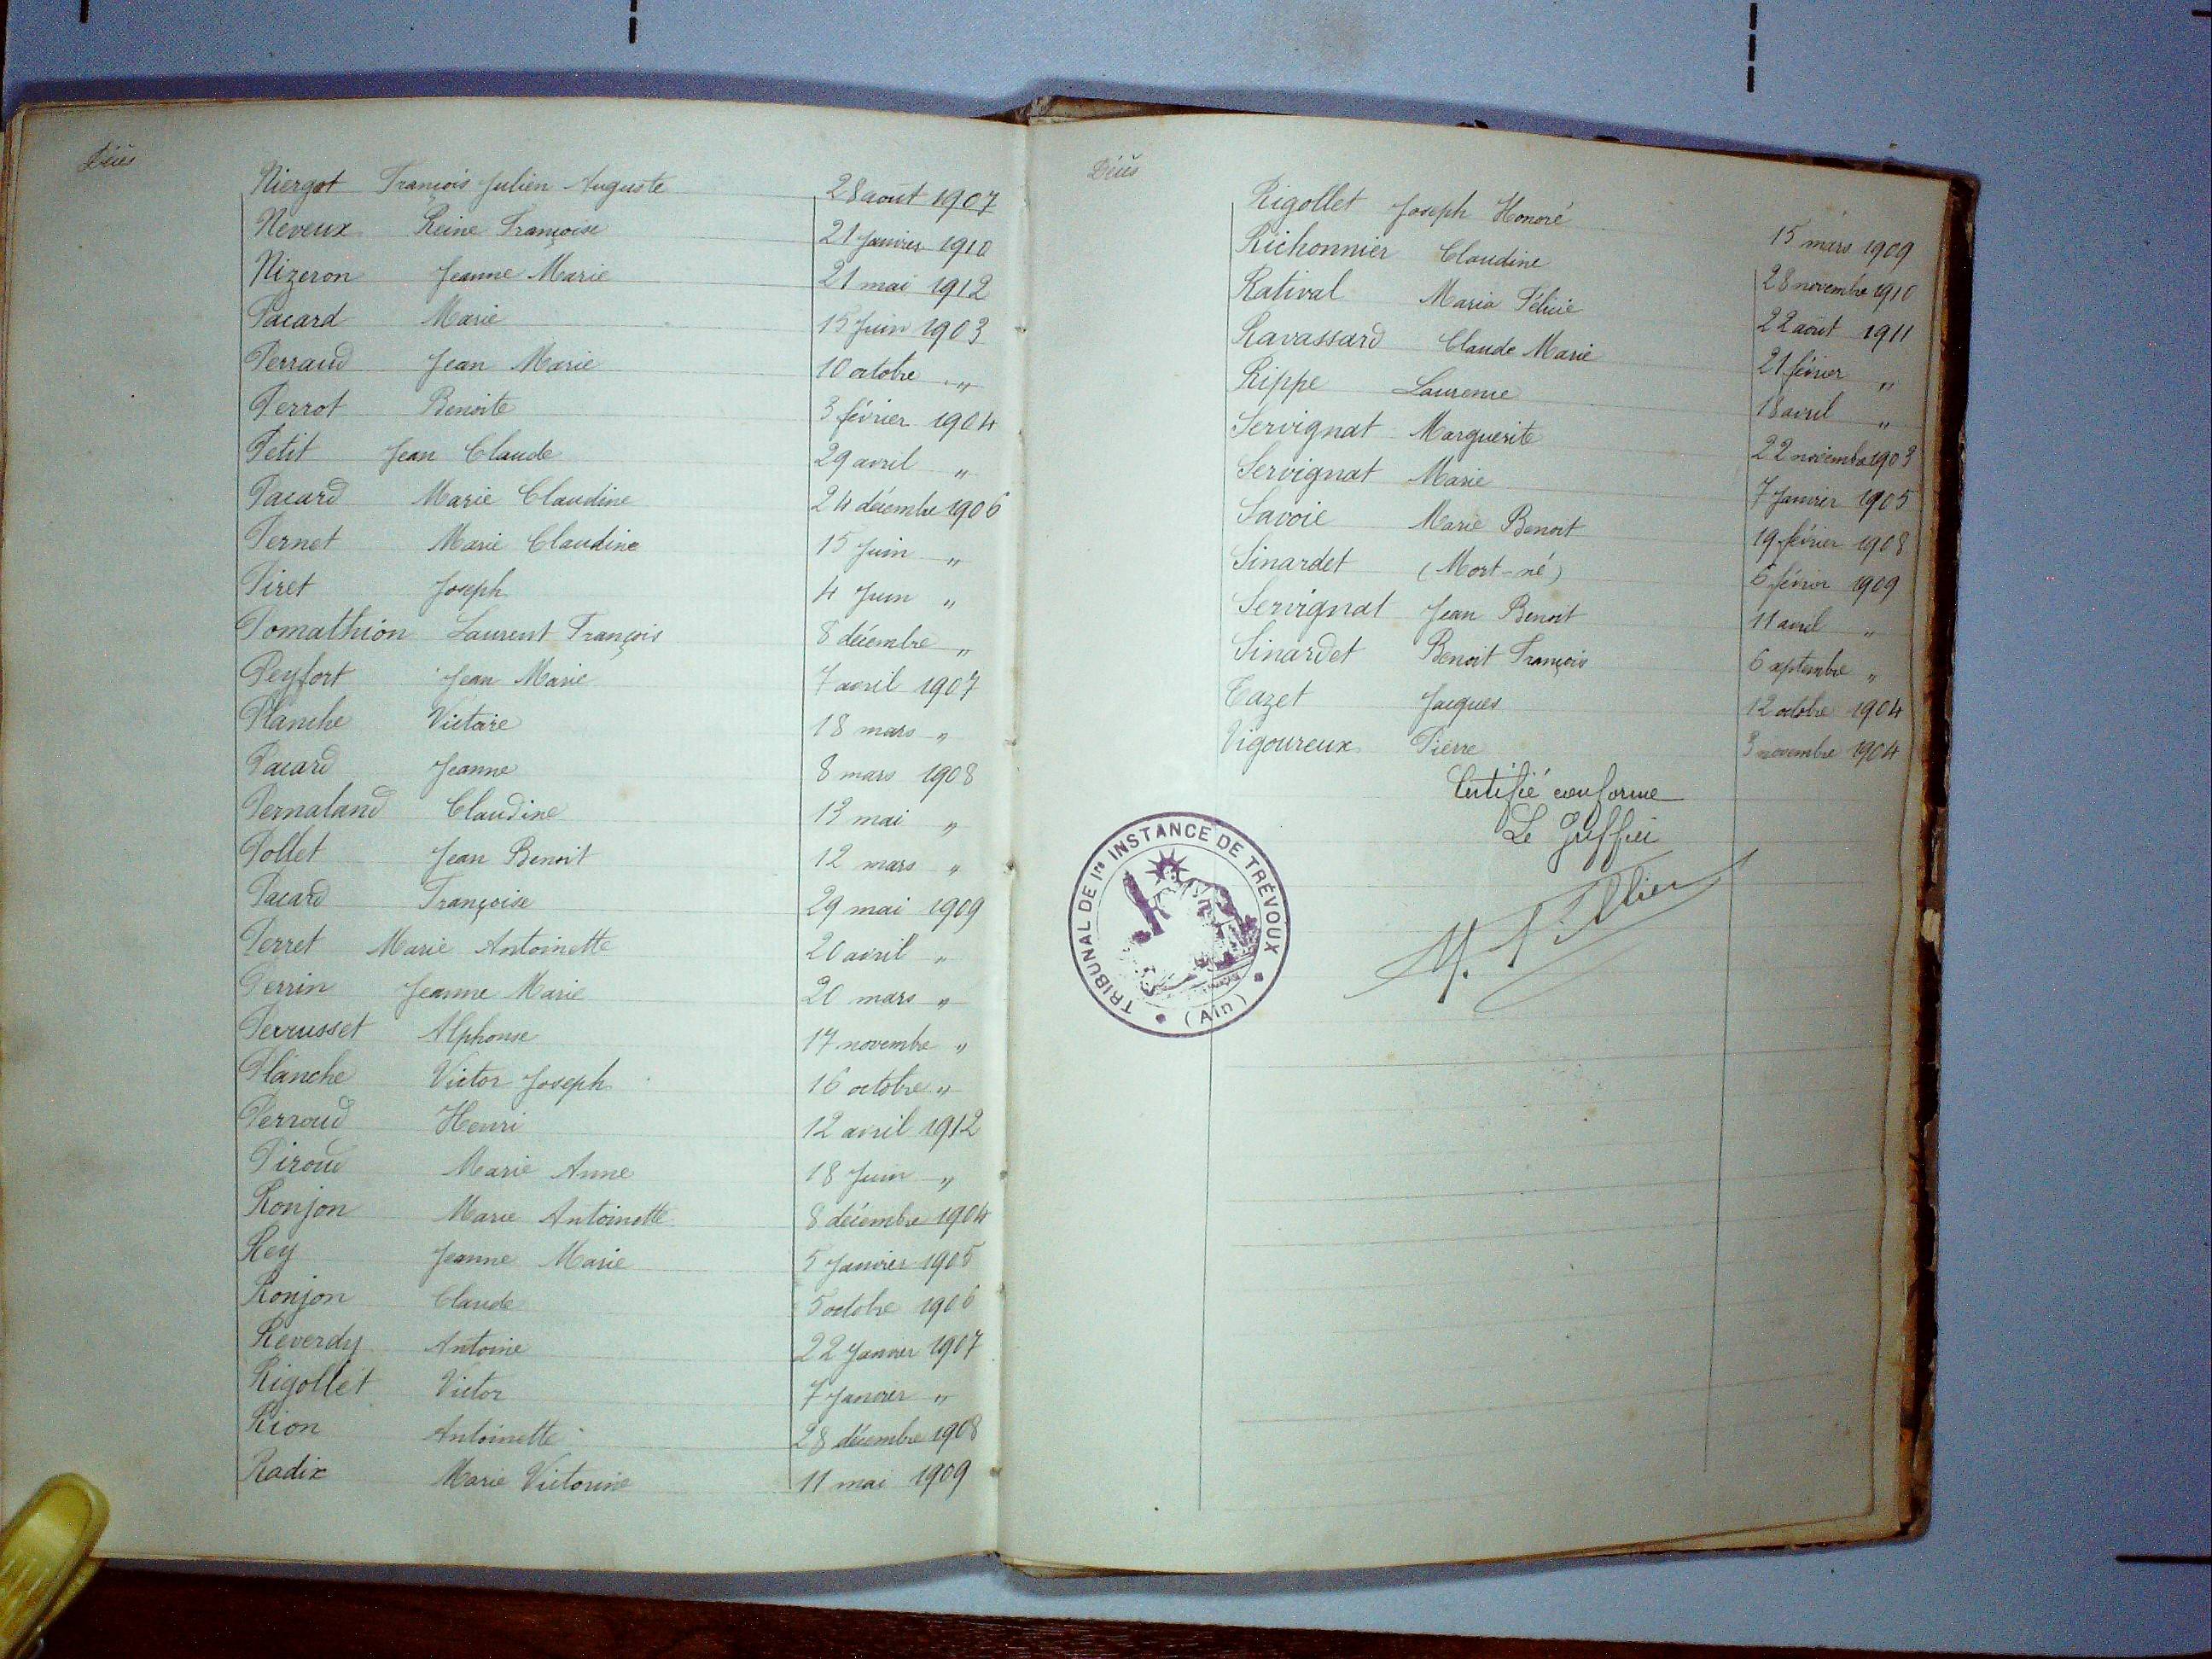 Décès
Niergot François Julien Auguste 28 août 1907
Neveux Reine Françoise 21 Janvier 1910
Nizeron Jeanne Marie 21 mai 1912
Pacard Marie 15 Juin 1903
Perraud Jean Marie 10 octobre "
Perrot Benoite 3 février 1904
Petit Jean Claude 29 avril "
Pacard Marie Claudine 24 décembre 1906
Pernet Marie Claudine 15 Juin "
Piret Joseph 4 Juin "
Pomathion Laurent François 8 décembre "
Peyfort Jean Marie 7 avril 1907
Planche Victoire 18 mars "
Pacard Jeanne 8 mars 1908
Pernaland Claudine 13 mai "
Pollet Jean Benoit 12 mars "
Pacard Françoise 29 mai 1909
Perret Marie Antoinette 20 avril "
Perrin Jeanne Marie 20 mars "
Perrusset Alphonse 17 novembre "
Planche Victor Joseph 16 octobre "
Perroud Henri 12 avril 1912
Piroud Marie Anne 18 Juin "
Ronjon Marie Antoinette 8 décembre 1904
Rey Jeanne Marie 5 Janvier 1905
Ronjon Claude 5 octobre 1906
Reverdy Antoine 22 Janvier 1907
Rigollet Victor 7 Janvier "
Rion Antoinette 28 décembre 1908
Radix Marie Victorine 11 mai 1909
Décès
Rigollet Joseph Honoré 15 mars 1909
Richonnier Claudine 28 novembre 1910
Ratival Maria Félicie 22 août 1911
Ravassard Claude Marie 21 février "
Rippe Laurence 18 avril "
Servignat Marguerite 22 novembre 1903
Servignat Marie 7 Janvier 1905
Savoie Marie Benoit 19 février 1908
Sinardet (Mort-né) 6 février 1909
Servignat Jean Benoit 11 avril "
Sinardet Benoit François 6 septembre "
Tazet Jacques 12 octobre 1904
Vigoureux Pierre 3 novembre 1904
Certifié conforme
Le Greffier
TRIBUNAL DE 1re INSTANCE DE TRÉVOUX
(Ain)